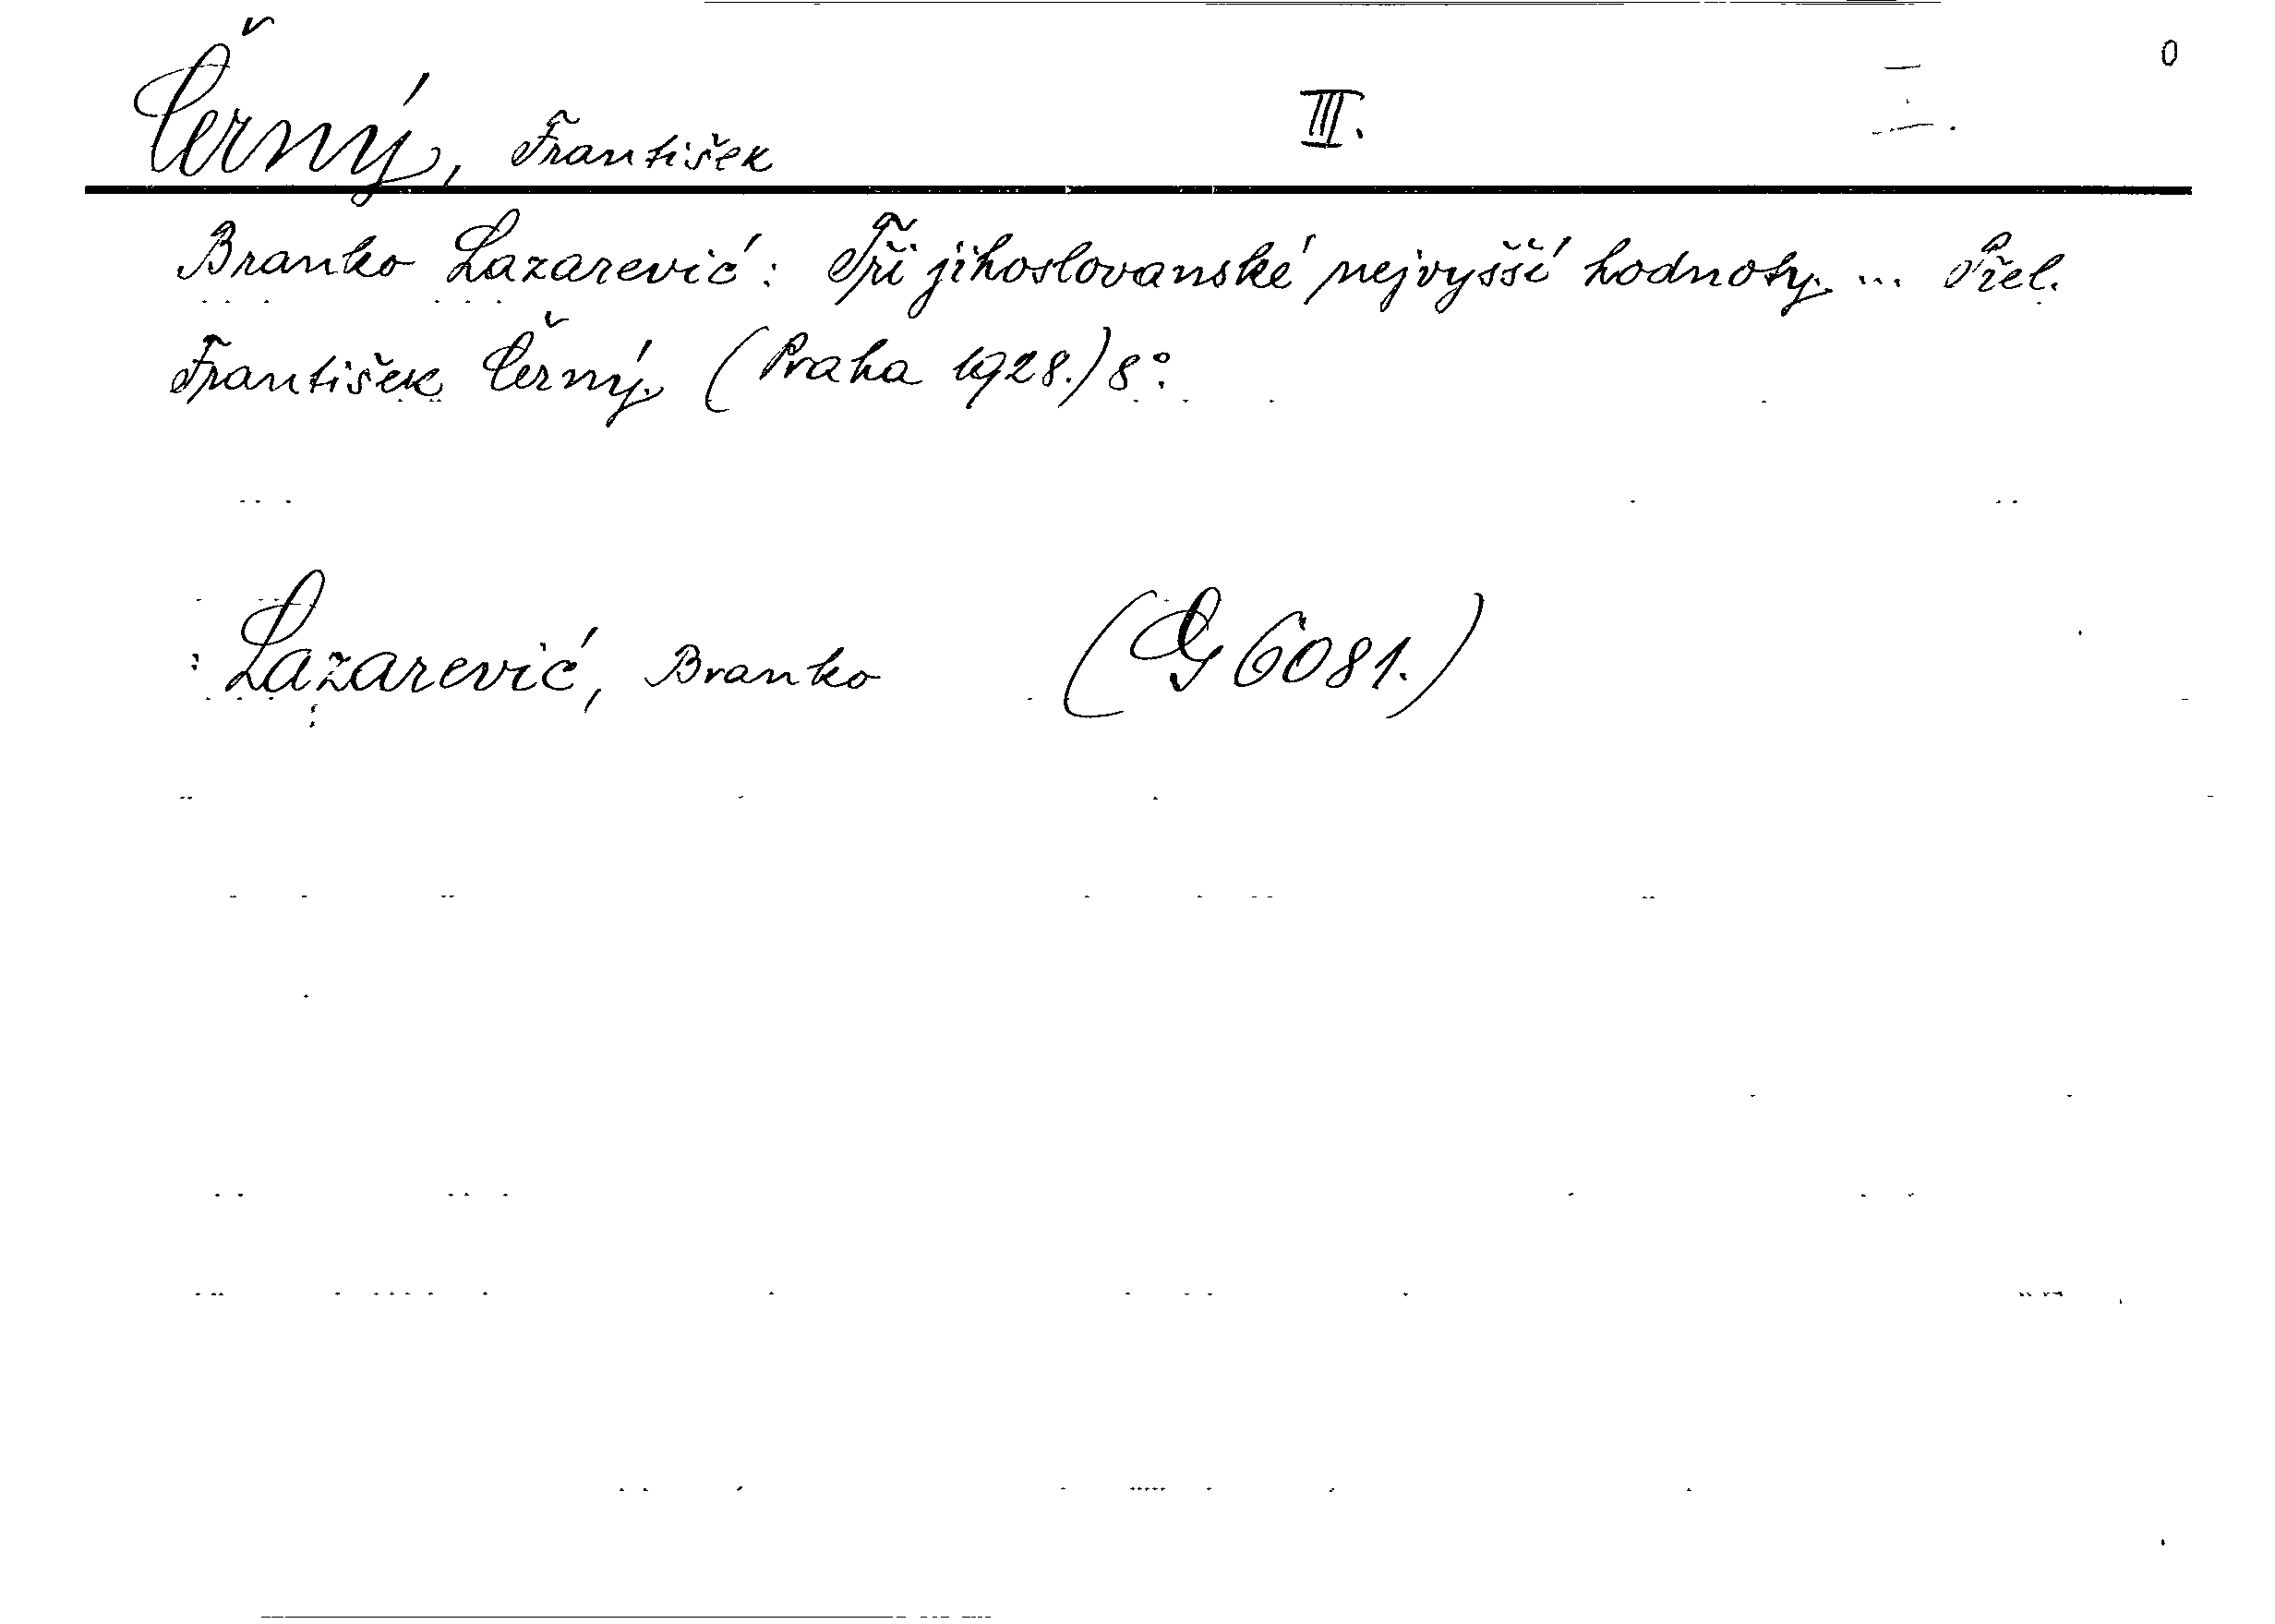 Černý, František III. 0
Branko Lazarević: Tři jihoslovanské nejvyšší hodnoty. ... Přel.
František Černý. (Praha 1928.) 8°.
Lazarević, Branko (G 6081.)